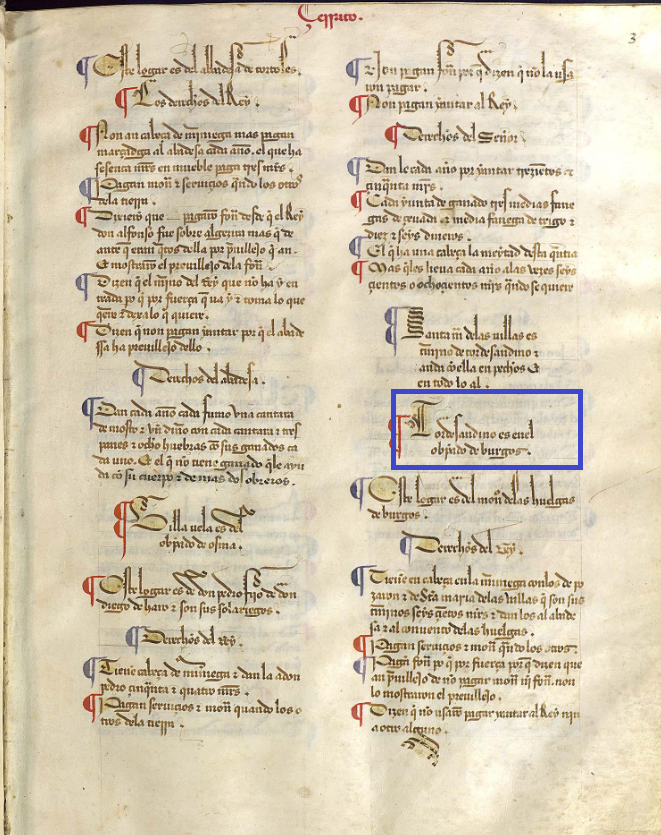 Cerrato.
3
Este logar es del abbadesa de tortoles.
Los derechos del Rey.
Non an cabeça de martiniega mas pagan
marçadga al abadesa cada año. el que ha
sesenta mrs en mueble paga tres mrs.
Pagan mon & seruicios qndo los otros
dela tierra.
Dixieron que pagaron fon desde q el Rey
don alfonso fue sobre algezira mas q de
ante q eran qtos della por preuillejo q an.
Et mostraron el preuillejo dela fon.
Dizen q el mino del Rey que no ha y en
trada po q por fuerça que va y & toma lo que
qere & dexa lo q quiere.
Dizen q non pagan yantar por q el abade
ssa ha preuillejo dello.
Derechos del abadesa.
Dan cada año cada fumo vna cantara
de mosto & vn dino con cada cantara & tres
panes & ocho huebras con sus ganados ca
da vno. Et el q no tiene ganado q le ayu
da co su cuerpo & de mas dos obreros.
Villa uela es del
obpado de osma.
Este logar es de don pedro fijo de don
diego de haro & son sus solariegos.
Derechos del rey.
Tiene cabeça de martiniega & dan la a don
pedro çinqnta & quatro mrs.
Pagan seruicios & mon quando los o
tros dela tierra.
Non pagan fon por q dizen q no la vsa
ron pagar.
Non pagan yantar al Rey.
Derechos del Señor.
Dan le cada año por yantar trezientos &
çinqnta mrs.
Cada yunta de ganado tres medias fane
gas de çeuada & media fanega de trigo &
diez & seys dineros.
El q ha una cabeça la meytad desta qntia
Mas q les lieua cada año a las vezes seys
çientos o ochoçientos mrs qndo se quiere
Santa m delas villas es
termino de tordesandino &
anda co ella en pechos Et
en todo lo al.
Tordesandino es en el
obpado de burgos.
Este logar es del mon delas huelgas
de burgos.
Derechos del Rey.
Tienen cabeça en la martiniega con los de po
zazon & de Sta maria delas villas q son sus
terminos seys çientos mrs & dan los al abade
sa & al conuento delas huelgas.
Pagan seruicios & mon qndo los otros.
Pagan fon po q por fuerça por q dizen que
an preuillejo de no pagar mon ni fon. non
lo mostraron el preuillejo.
Dizen q no vsaron pagar yantar al Rey nin
a otro alguno.